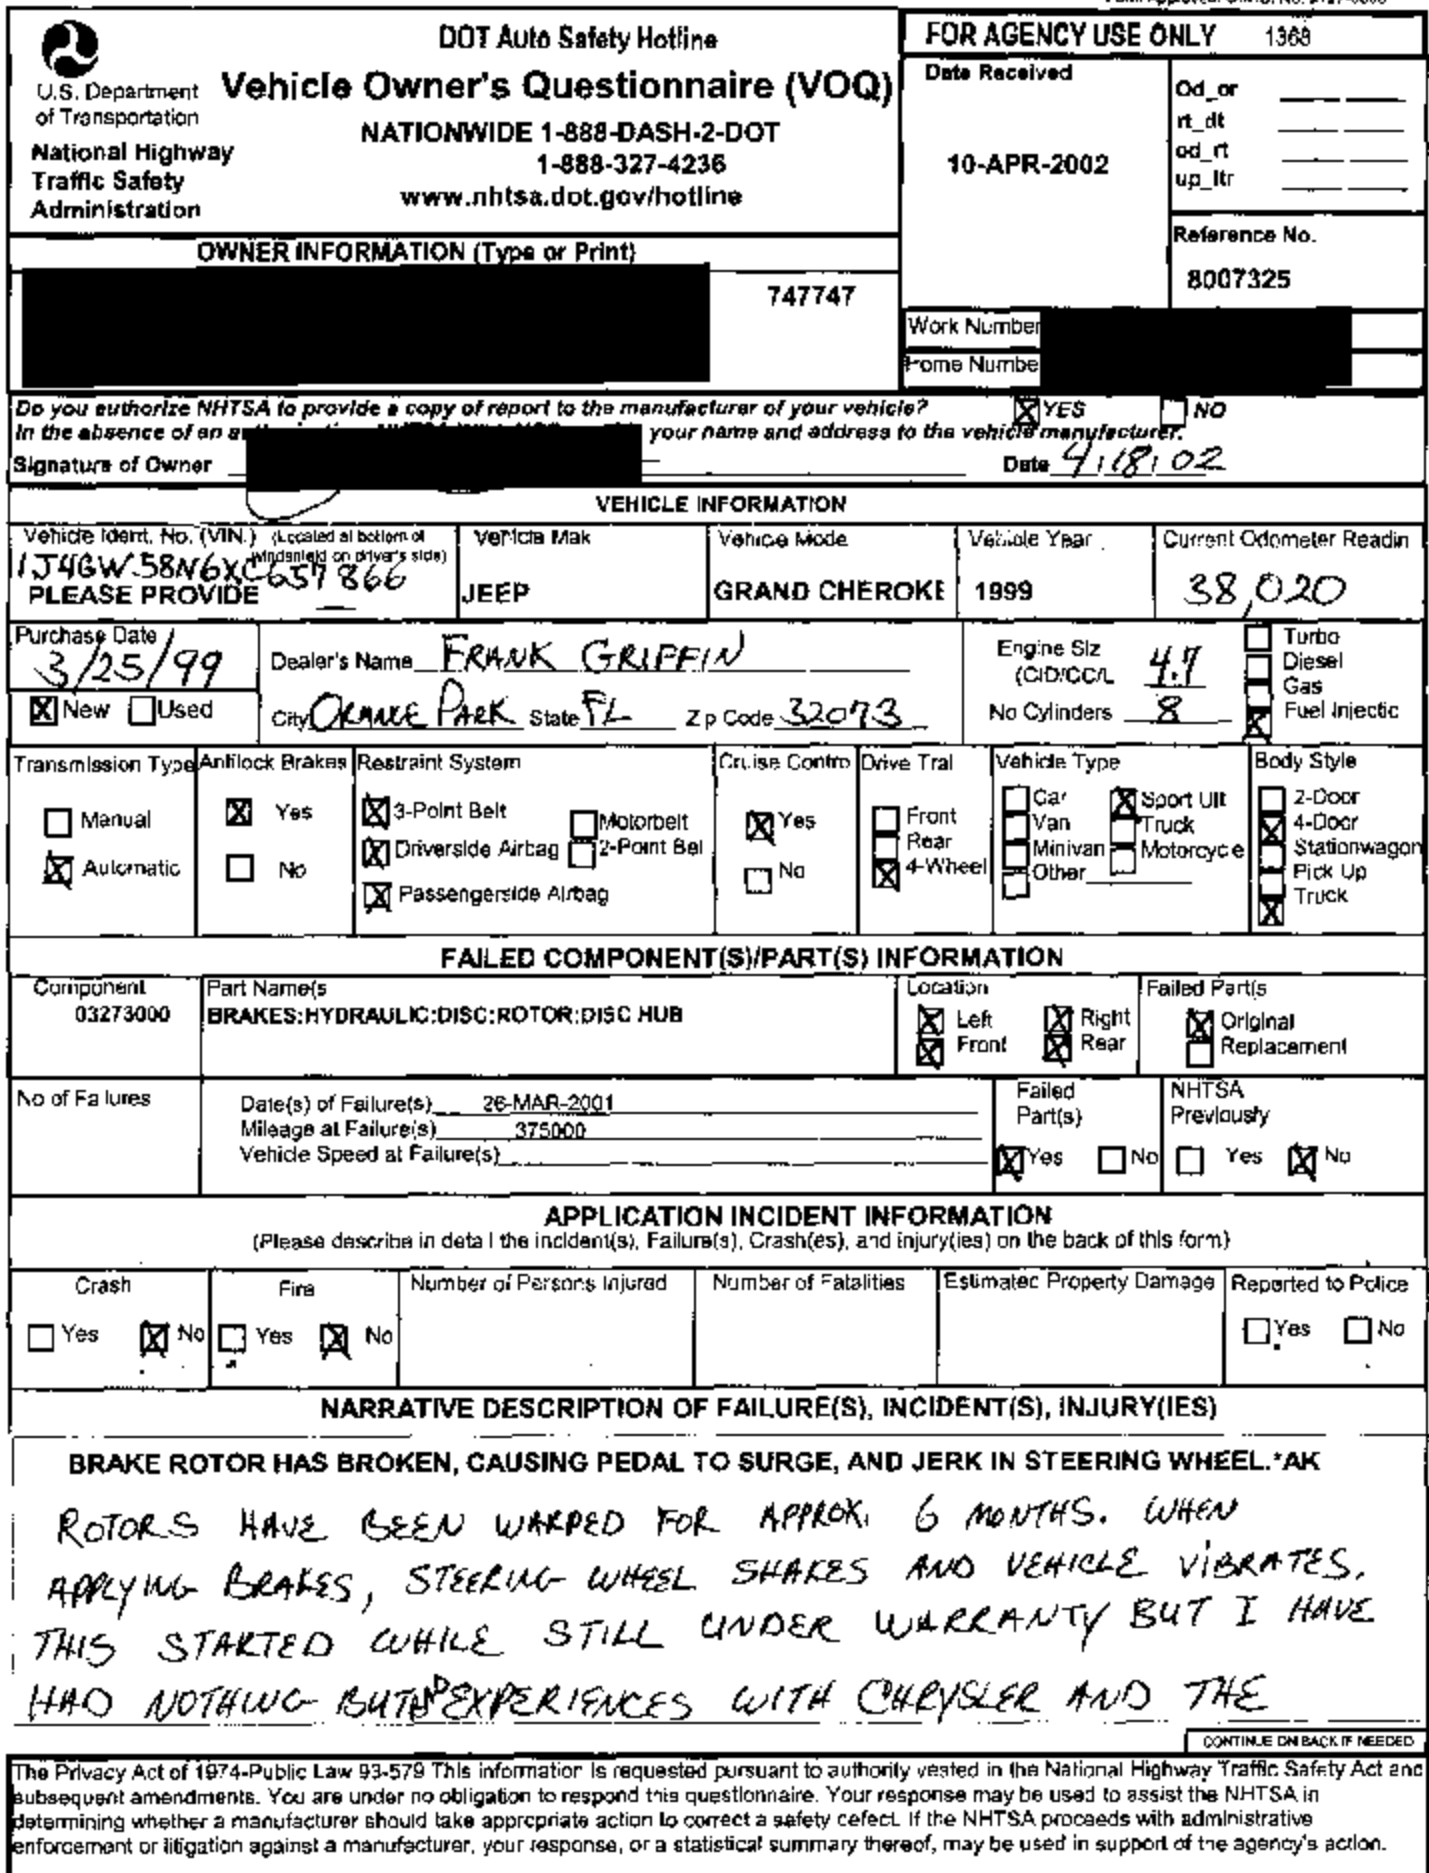 DOT Auto Safety Hotline
Vehicle Owner's Questionnaire (VOQ)
NATIONWIDE 1-888-DASH-2-DOT
1-888-327-4236
www.nhtsa.dot.gov/hotline
U.S. Department
of Transportation
National Highway
Traffic Safety
Administration
FOR AGENCY USE ONLY 1368
Date Received
10-APR-2002
Od_or
rt_dt
od_rt
up_ltr
Reference No.
8007325
OWNER INFORMATION (Type or Print)
747747
Work Number
Home Numbe
Do you authorize NHTSA to provide a copy of report to the manufacturer of your vehicle? X YES NO
In the absence of an your name and address to the vehicle manufacturer.
Signature of Owner Date 4/18/02
VEHICLE INFORMATION
Vehicle Ident. No. (VIN.) (Located at bottom of
windshield on driver's side)
1J4GW58N6XC657866
PLEASE PROVIDE
Vehicle Mak
JEEP
Vehicle Mode
GRAND CHEROKE
Vehicle Year
1999
Current Odometer Readin
38,020
Purchase Date
3/25/99
X New Used
Dealer's Name FRANK GRIFFIN
City ORANGE PARK State FL Z p Code 32073
Engine Siz
(CID/CC/L 4.7
No Cylinders 8
Turbo
Diesel
Gas
X Fuel Injectic
Transmission Type
Manual
X Automatic
Antilock Brakes
X Yes
No
Restraint System
X 3-Point Belt
Motorbelt
X Driverside Airbag
2-Point Bel
X Passengerside Airbag
Cruise Contro
X Yes
No
Drive Trai
Front
Rear
X 4-Wheel
Vehicle Type
Car X Sport Ult
Van Truck
Minivan Motorcycle
Other
Body Style
2-Door
X 4-Door
Stationwagon
Pick Up
X Truck
FAILED COMPONENT(S)/PART(S) INFORMATION
Component
03273000
Part Name(s
BRAKES:HYDRAULIC:DISC:ROTOR:DISC HUB
Location
X Left X Right
X Front X Rear
Failed Part(s
X Original
Replacement
No of Failures
Date(s) of Failure(s) 26-MAR-2001
Mileage at Failure(s) 375000
Vehicle Speed at Failure(s)
Failed
Part(s)
X Yes No
NHTSA
Previously
Yes X No
APPLICATION INCIDENT INFORMATION
(Please describe in detail the incident(s), Failure(s), Crash(es), and injury(ies) on the back of this form)
Crash
Yes X No
Fire
Yes X No
Number of Persons Injured
Number of Fatalities
Estimated Property Damage
Reported to Police
Yes No
NARRATIVE DESCRIPTION OF FAILURE(S), INCIDENT(S), INJURY(IES)
BRAKE ROTOR HAS BROKEN, CAUSING PEDAL TO SURGE, AND JERK IN STEERING WHEEL.*AK
ROTORS HAVE BEEN WARPED FOR APPROX. 6 MONTHS. WHEN
APPLYING BRAKES, STEERING WHEEL SHAKES AND VEHICLE VIBRATES.
THIS STARTED WHILE STILL UNDER WARRANTY BUT I HAVE
HAD NOTHING BUT EXPERIENCES WITH CHRYSLER AND THE
CONTINUE ON BACK IF NEEDED
The Privacy Act of 1974-Public Law 93-579 This information is requested pursuant to authority vested in the National Highway Traffic Safety Act and
subsequent amendments. You are under no obligation to respond this questionnaire. Your response may be used to assist the NHTSA in
determining whether a manufacturer should take appropriate action to correct a safety defect. If the NHTSA proceeds with administrative
enforcement or litigation against a manufacturer, your response, or a statistical summary thereof, may be used in support of the agency's action.